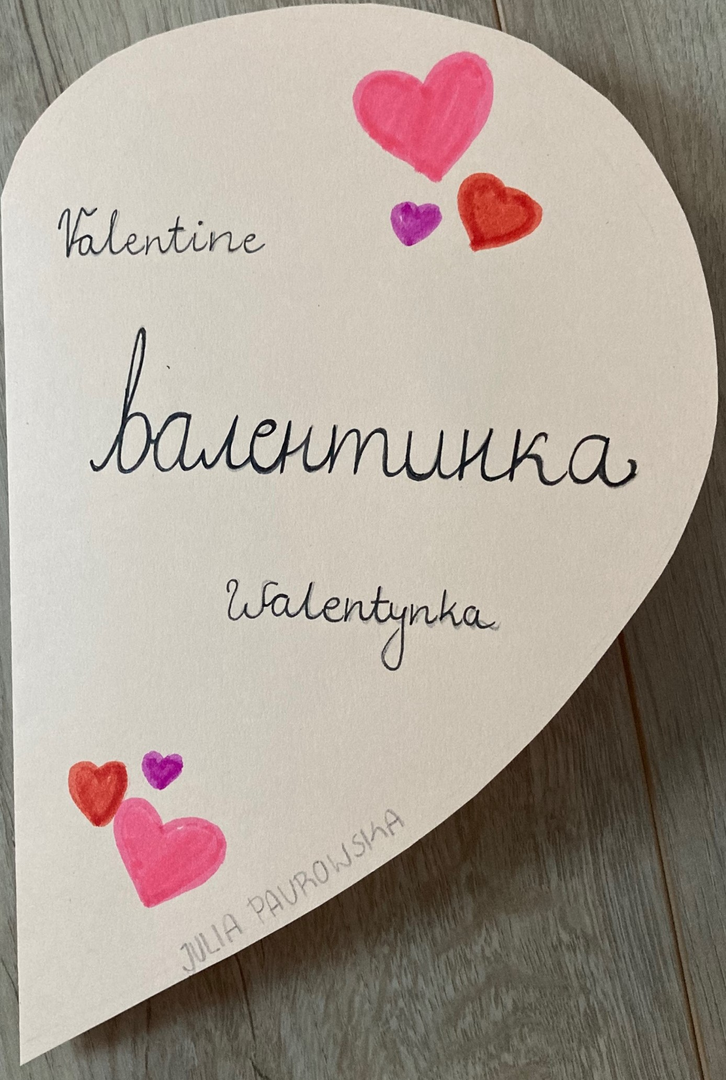 Valentine
валентинка
Walentynka
JULIA PAUROWSKA